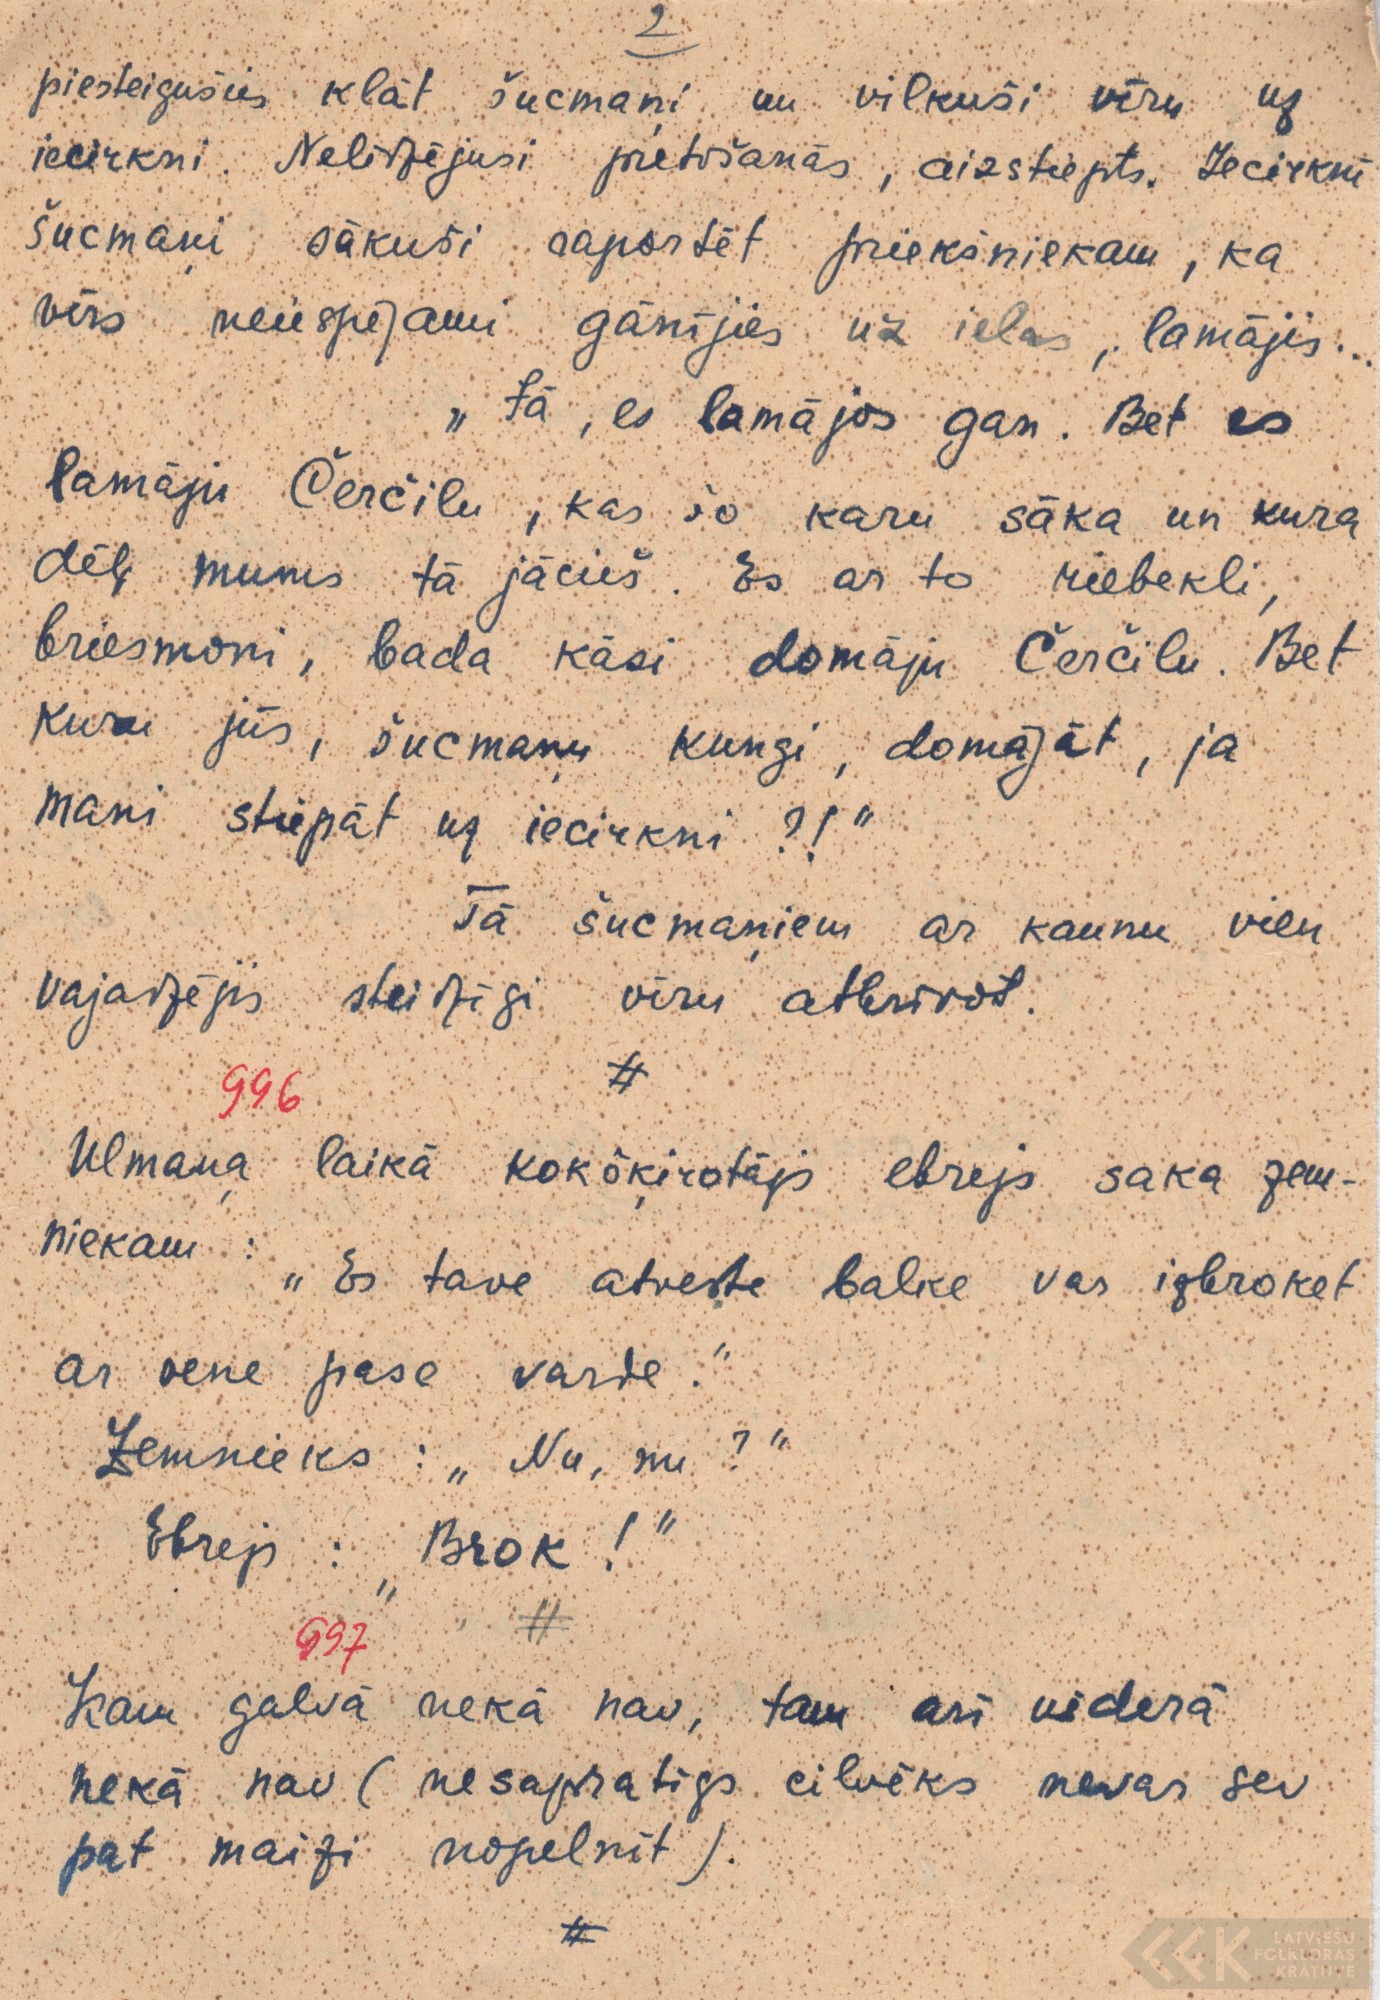 2
piesteigušies klāt šucmaņi un vilkuši vīru uz
iecirkni. Nelīdzējusi pretošanās, aizstiepts. Iecirknī
šucmaņi sākuši raportēt priekšniekam, ka
vīrs neiespējami gānījies uz ielas, lamājis...
„Jā, es lamājos gan. Bet es
lamāju Čerčilu, kas šo karu sāka un kura
dēļ mums tā jācieš. Es ar to riebekli,
briesmoni, bada kāsi domāju Čerčilu. Bet
kuru jūs, šucmaņu kungi, domājāt, ja
mani stiepāt uz iecirkni?!"
Tā šucmaņiem ar kaunu vien
vajadzējis steidzīgi vīru atbrīvot.
#
996
Ulmaņa laikā kokšķirotājs ebrejs saka zem-
niekam:
„Es tave atveste balke var izbroķet
ar vene pase varde."
Zemnieks: „Nu, nu?"
Ebrejs: „Brok!"
#
997
Kam galvā nekā nav, tam arī viderā
nekā nav (nesapratīgs cilvēks nevar sev
pat maizi nopelnīt).
#
LATVIEŠU
FOLKLORAS
KRĀTUVE